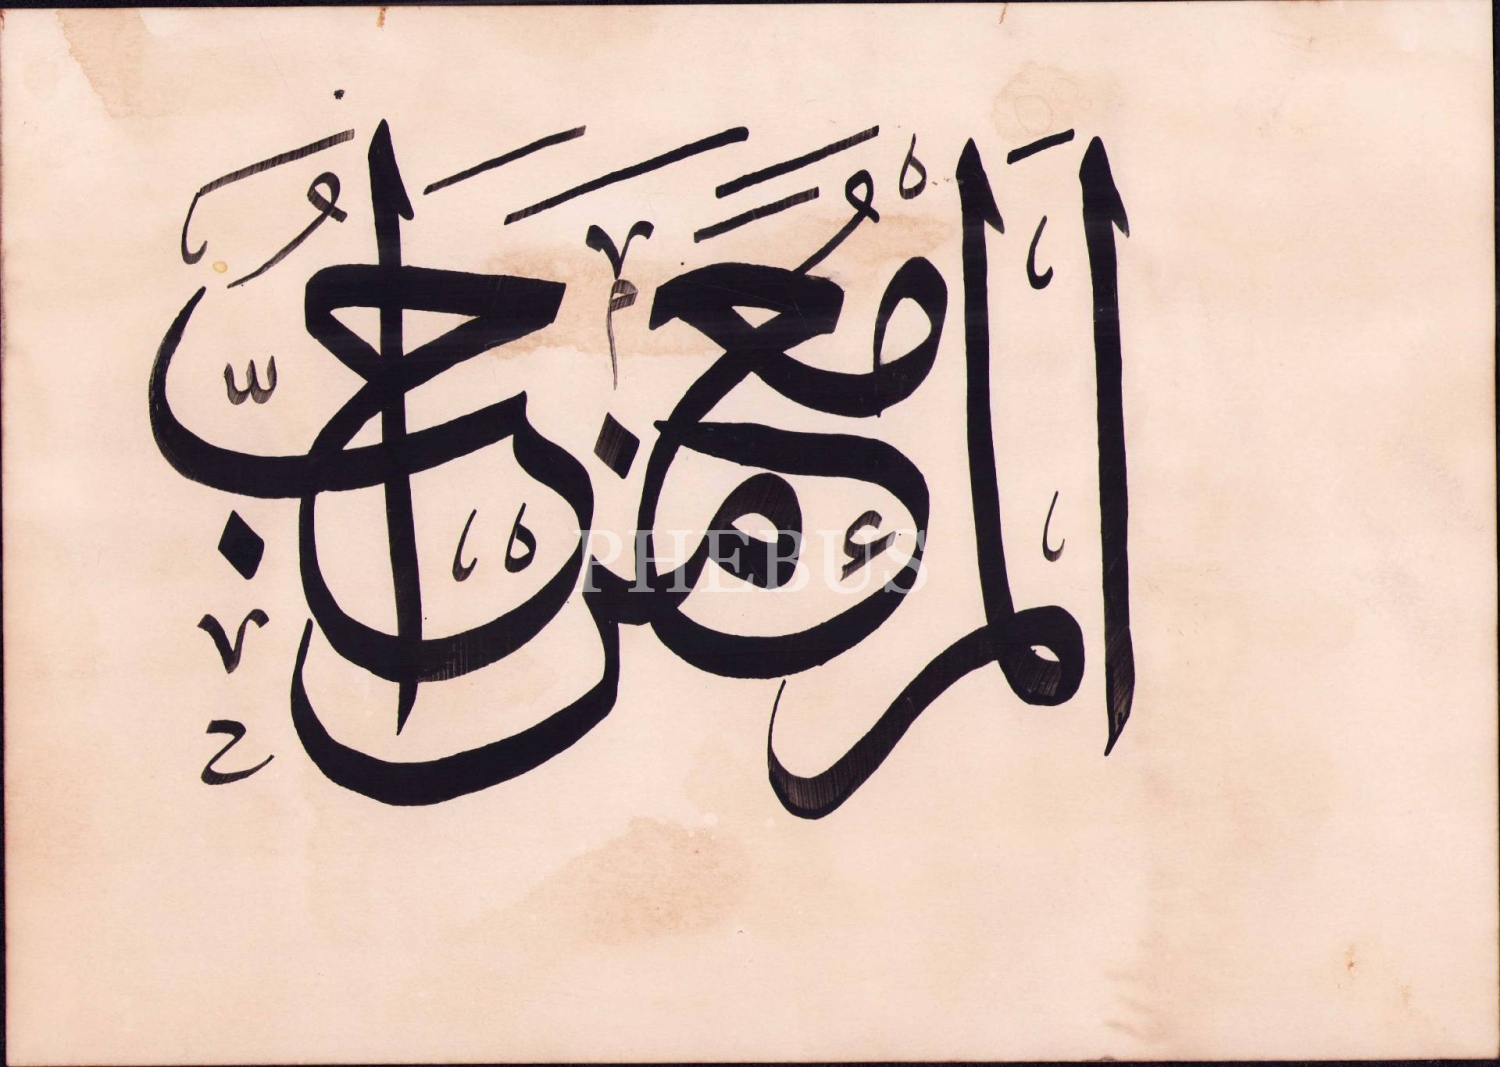 المرء مع من احب
PHEBUS